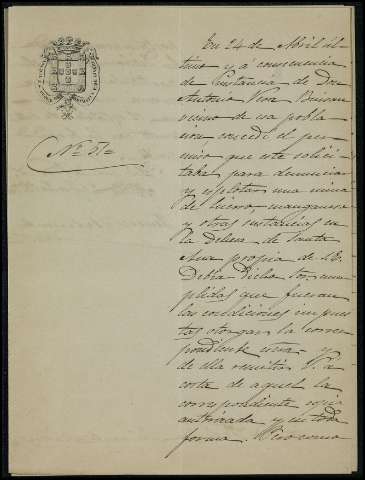 Nº 51=
En 24 de Abril úl-
timo y á consecuencia
de instancia de Don
Antonio Vera
vecino de esa pobla-
cion concedí el per-
miso que este solici-
taba para denunciar
y esplotar una mina
de hierro, manganeso
y otras sustancias en
la Dehesa de Santa
Ana propia de S.E.
Debia dicho Sor. cum-
plidas que fueran
las condiciones impues-
tas otorgar la corres-
pondiente y
de ella remitir V. á
costa de aquel la
correspondiente copia
autorizada y en toda
forma. Pero como